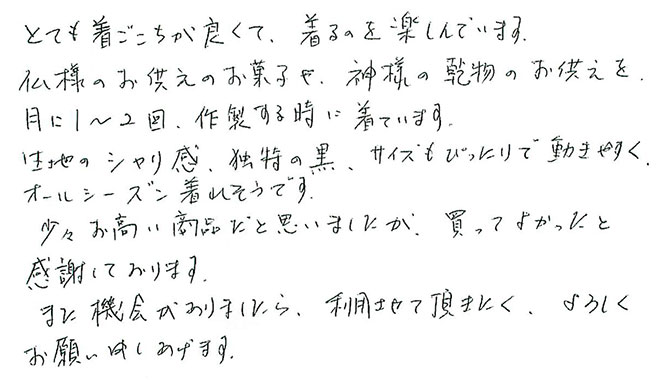 とても着ごこちが良くて、着るのを楽しんでいます。
仏様のお供えのお菓子や、神様の乾物のお供えを、
月に1～2回、作製する時に着ています。
生地のシャリ感、独特の黒、サイズもぴったりで動きやすく、
オールシーズン着れそうです。
少々お高い商品だと思いましたが、買ってよかったと
感謝しております。
また機会がありましたら、利用させて頂きたく、よろしく
お願い申しあげます。